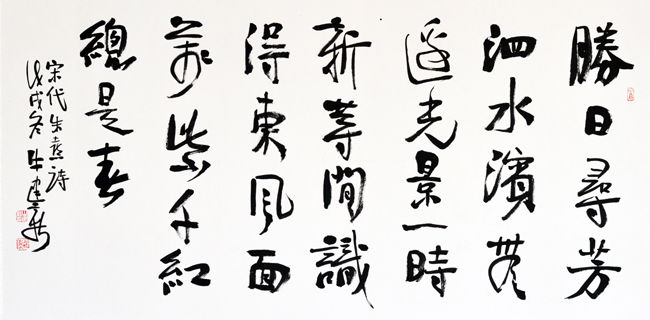 勝日尋芳
泗水濱無
邊光景一時
新等間識
得東風面
萬紫千紅
總是春
宋代朱熹詩
戊戌冬牛建